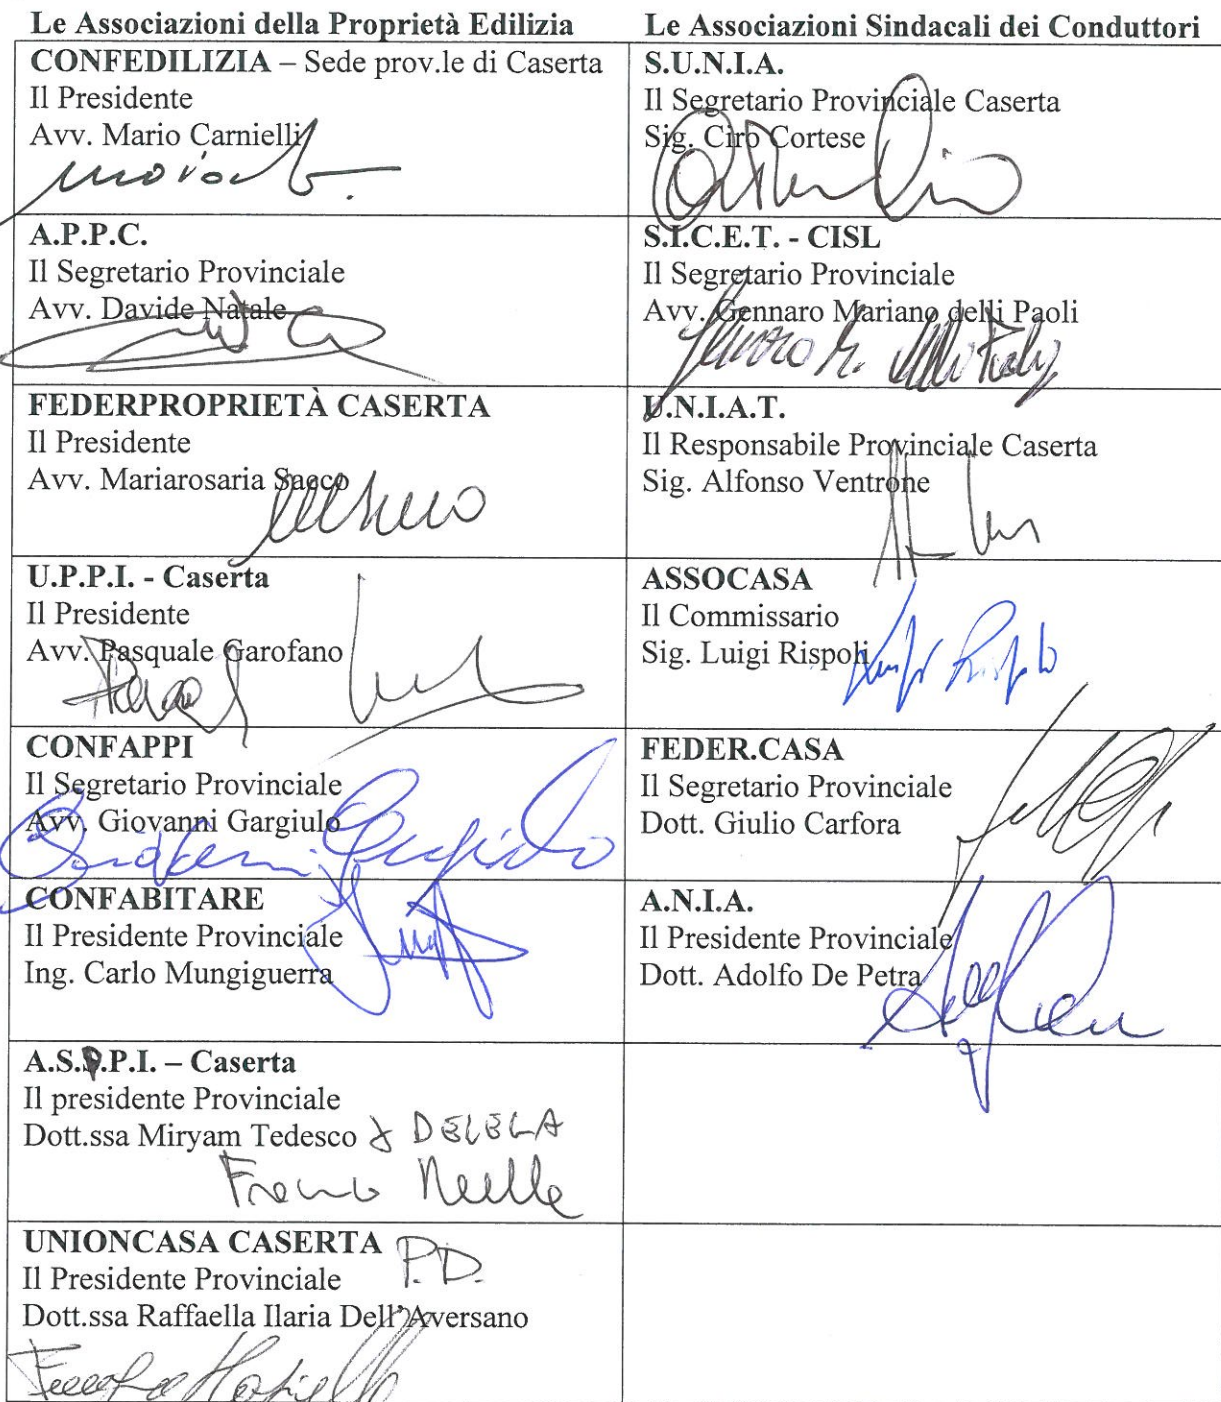 Le Associazioni della Proprietà Edilizia
Le Associazioni Sindacali dei Conduttori
CONFEDILIZIA – Sede prov.le di Caserta
Il Presidente
Avv. Mario Carnielli
S.U.N.I.A.
Il Segretario Provinciale Caserta
Sig. Ciro Cortese
A.P.P.C.
Il Segretario Provinciale
Avv. Davide Natale
S.I.C.E.T. - CISL
Il Segretario Provinciale
Avv. Gennaro Mariano delli Paoli
FEDERPROPRIETÀ CASERTA
Il Presidente
Avv. Mariarosaria Sacco
U.N.I.A.T.
Il Responsabile Provinciale Caserta
Sig. Alfonso Ventrone
U.P.P.I. - Caserta
Il Presidente
Avv. Pasquale Garofano
ASSOCASA
Il Commissario
Sig. Luigi Rispoli
Luigi Rispoli
CONFAPPI
Il Segretario Provinciale
Avv. Giovanni Gargiulo
Giovanni Gargiulo
FEDER.CASA
Il Segretario Provinciale
Dott. Giulio Carfora
CONFABITARE
Il Presidente Provinciale
Ing. Carlo Mungiguerra
A.N.I.A.
Il Presidente Provinciale
Dott. Adolfo De Petra
A.S.P.P.I. – Caserta
Il presidente Provinciale
Dott.ssa Miryam Tedesco DELEGA
UNIONCASA CASERTA P.D.
Il Presidente Provinciale
Dott.ssa Raffaella Ilaria Dell'Aversano